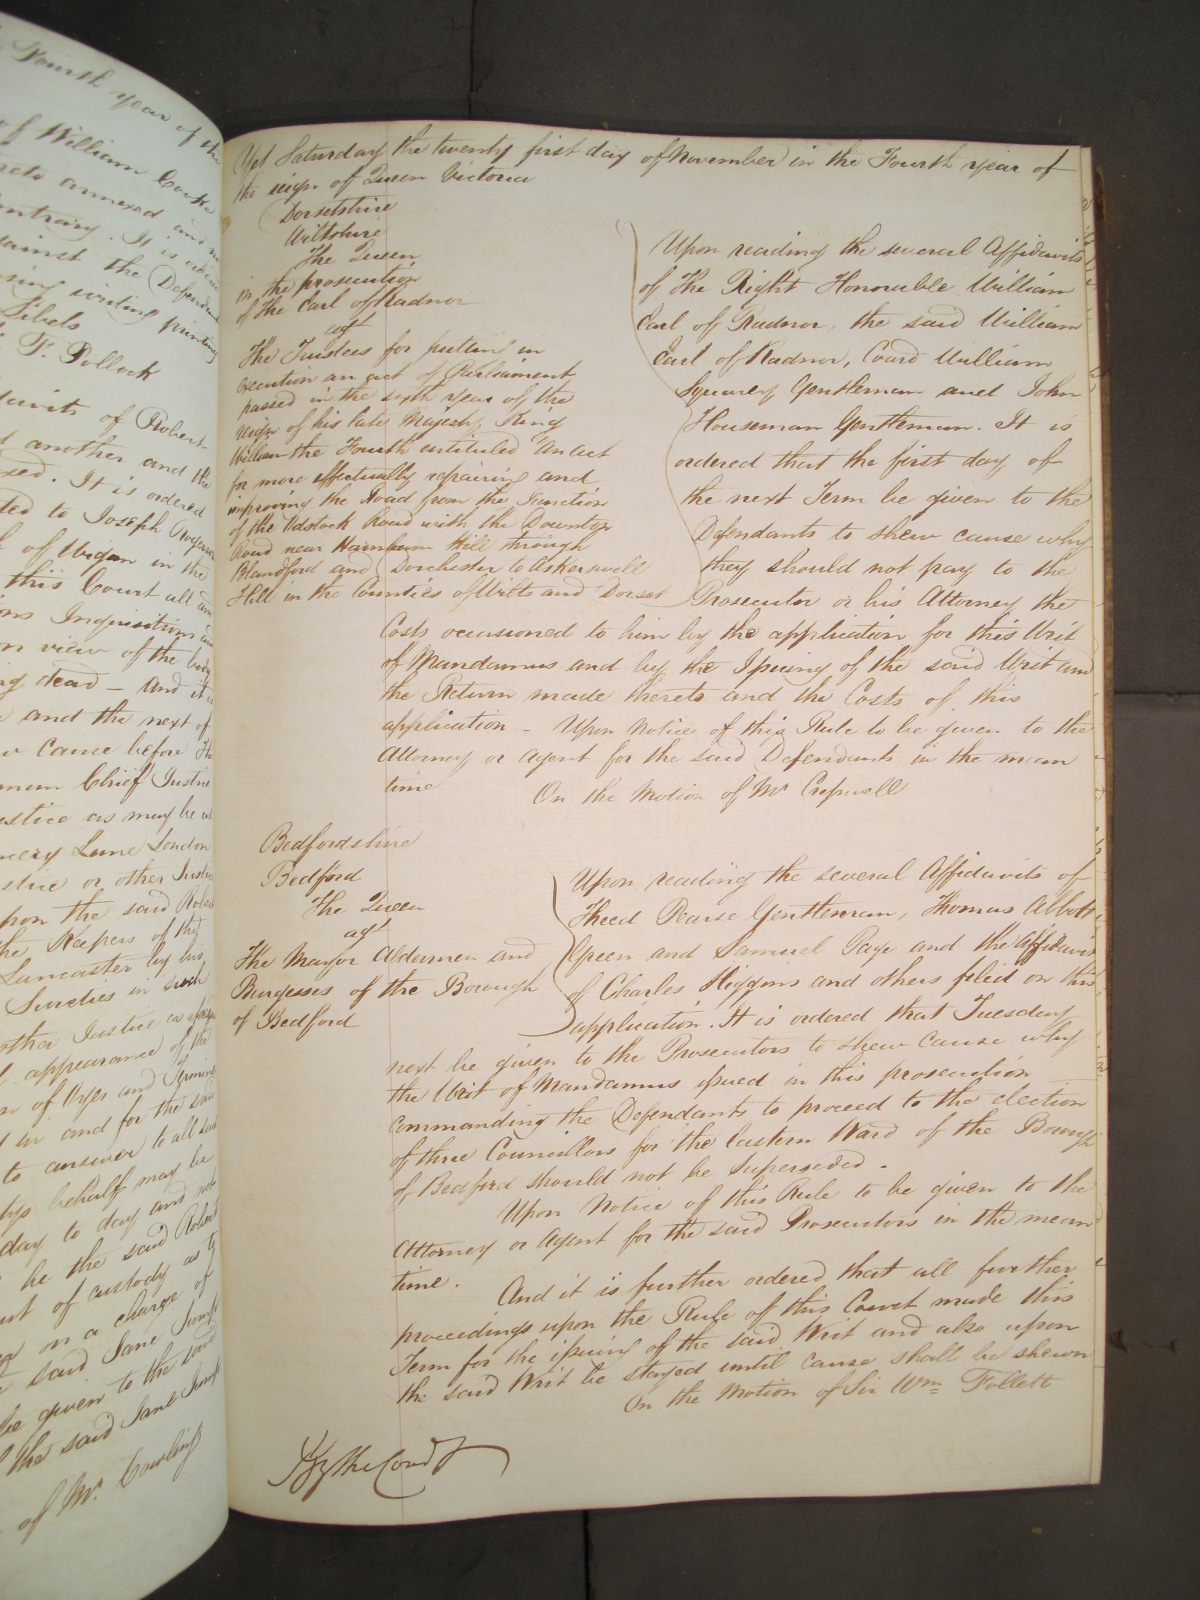 Fourth year of the
of William Cooke
annexed and
contrary. It is ordered
against the Defendant
writing printing
Libels
F. Pollock
of Robert
another and the
It is ordered
to Joseph
of Wigan in the
this Court all and
Inquisitions
on view of the body
dead - And it is
and the next of
cause before the
Chief Justice
Justice as may be
Lane London
or other Justice
upon the said Robert
the Keepers of the
Lancaster by his
Sureties in such
other Justice as
appearance of the
of Oyer and Terminer
in and for the said
to answer to all such
behalf may be
day to day and not
he the said Robert
out of custody as to
on a charge of
said Jane
be given to the said
the said Jane
of Mr. Cowling
Yet Saturday the twenty first day of November in the Fourth year of
the reign of Queen Victoria
Dorsetshire
Wiltshire
The Queen
in the prosecution
of the Earl of Radnor
agt
The Trustees for putting in
execution an act of Parliament
passed in the sixth year of the
reign of his late Majesty King
William the Fourth intituled An act
for more effectually repairing and
improving the Road from the Junction
of the Odstock Road with the Downton
Road near Harnham Hill through
Blandford and Dorchester to Askerswell
Hill in the Counties of Wilts and Dorset
Upon reading the several Affidavits
of The Right Honourable William
Earl of Radnor, the said William
Earl of Radnor, Coard William
Squarey Gentleman and John
Houseman Gentleman. It is
ordered that the first day of
the next Term be given to the
Defendants to shew cause why
they should not pay to the
Prosecutor or his Attorney the
Costs occasioned to him by the application for this Writ
of Mandamus and by the Issuing of the said Writ and
the Return made thereto and the Costs of this
application - Upon Notice of this Rule to be given to the
Attorney or agent for the said Defendants in the mean
time
On the Motion of Mr Cresswell
Bedfordshire
Bedford
The Queen
agt
The Mayor Aldermen and
Burgesses of the Borough
of Bedford
Upon reading the several Affidavits of
Theed Pearse Gentleman, Thomas Abbott
Green and Samuel Page and the Affidavit
of Charles Higgins and others filed on this
application. It is ordered that Tuesday
next be given to the Prosecutors to shew cause why
the Writ of Mandamus issued in this prosecution
commanding the Defendants to proceed to the election
of three Councillors for the Eastern Ward of the Borough
of Bedford should not be Superseded.
Upon Notice of this Rule to be given to the
Attorney or Agent for the said Prosecutors in the mean
time. And it is further ordered that all further
proceedings upon the Rule of this Court made this
Term for the issuing of the said Writ and also upon
the said Writ be stayed until cause shall be shewn
On the Motion of Sir Wm Follett
By the Court